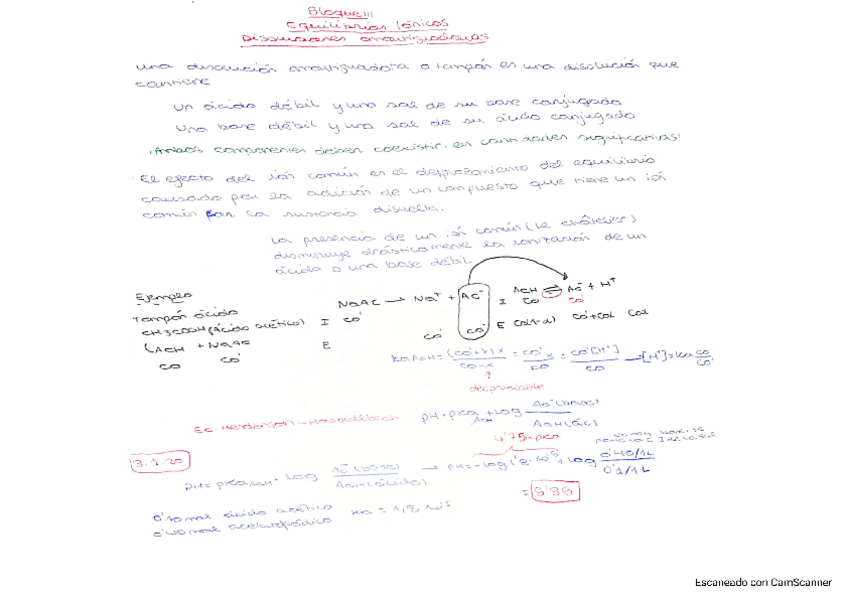 Bloque III
Equilibrios Iónicos
Disoluciones amortiguadoras
una disolución amortiguadora o tampón es una disolución que
contiene
Un ácido débil y una sal de su base conjugada
Una base débil y una sal de su ácido conjugado
¡Ambos componentes deben coexistir en cantidades significativas!
El efecto del ión común es el desplazamiento del equilibrio
causado por la adición de un compuesto que tiene un ión
común con la sustancia disuelta.
La presencia de un ión común (Le châtelier)
disminuye drásticamente la ionización de un
ácido o una base débil
Ejemplo
Tampón ácido
CH3COOH (ácido acético)
(AcH + NaAc
co co'
NaAc → Na⁺ + Ac⁻
I co'
E co' co'
AcH ⇌ Ac⁻ + H⁺
I co co'
E co(1-α) co'+coα coα
KaAcH = (co'+x)x / co-x = co'x / co = co'[H⁺] / co → [H⁺] = Ka co / co'
despreciable
Ec. Henderson-Hasselbalch pH = pKa AcH + log Ac⁻(base) / AcH(ác)
4'75 = pKa
3.1.20
pH = pKa AcH + log Ac⁻(base) / AcH(ácido) → pH = -log 1'8·10⁻⁵ + log 0'40/1L / 0'1/1L
= 5'35
0'10 mol ácido acético Ka = 1,8·10⁻⁵
0'40 mol acetato sódico
Escaneado con CamScanner